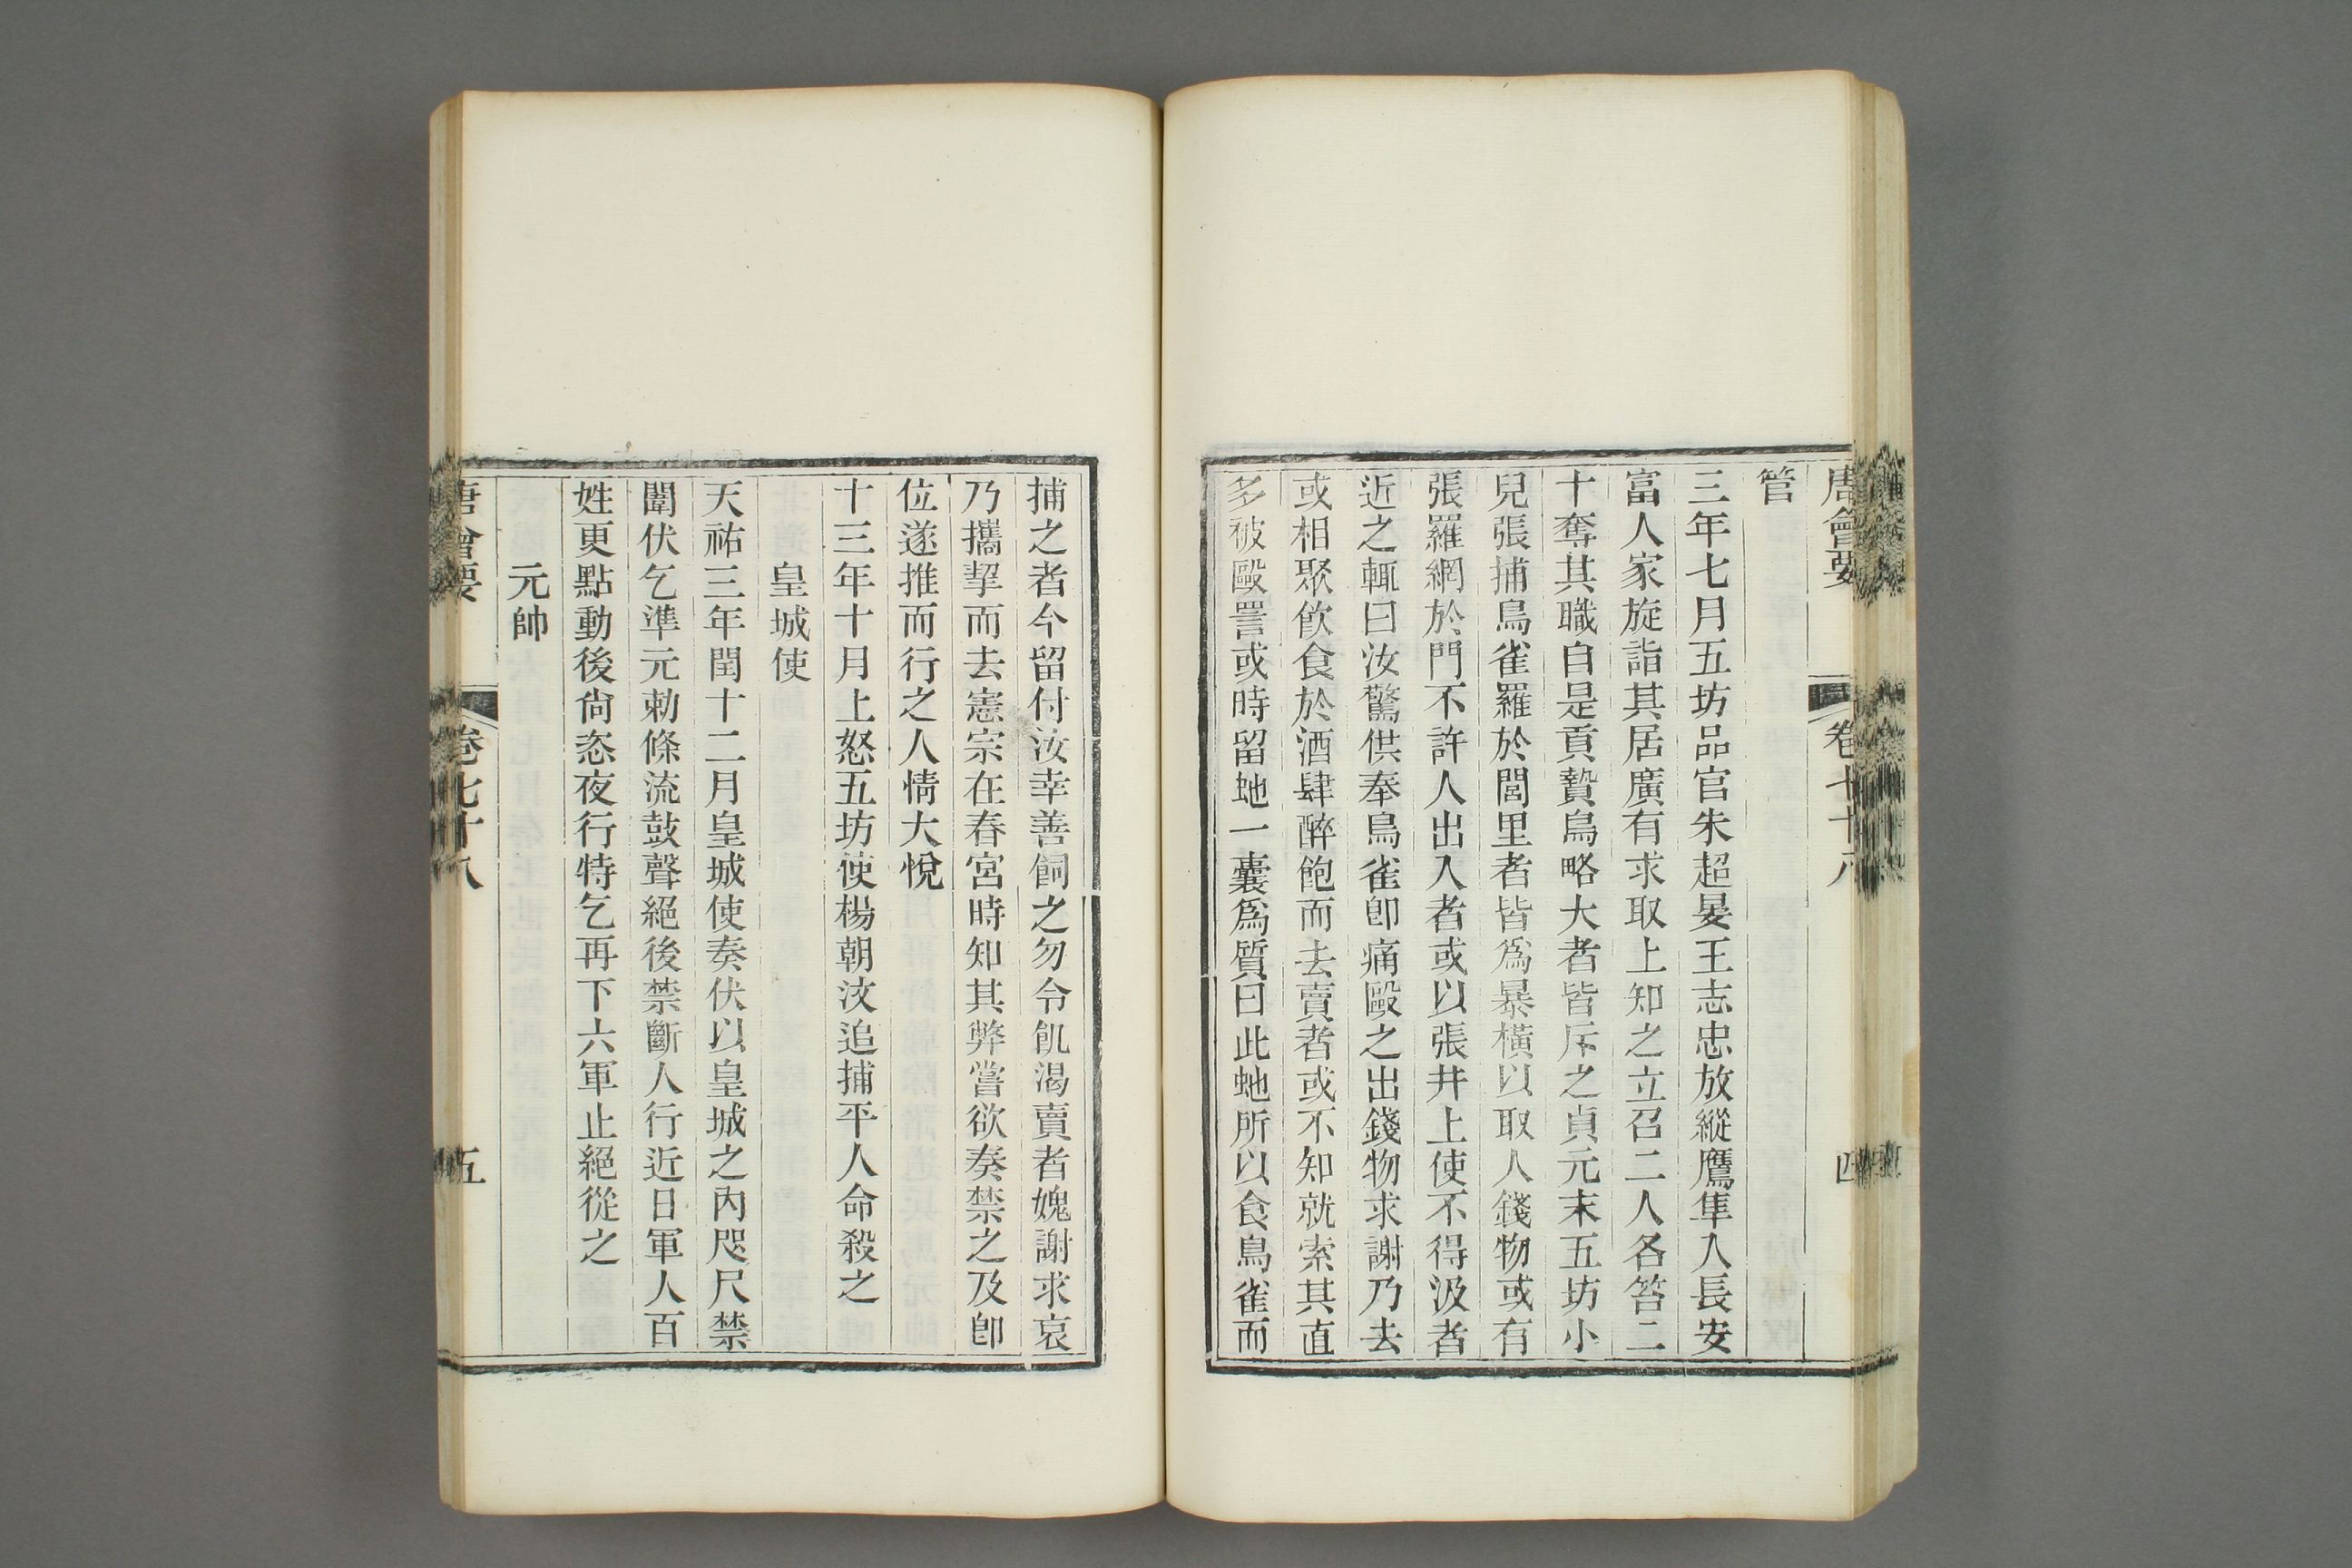 唐會要 卷七十八 四
管
三年七月五坊品官朱超晏王志忠放縱鷹隼入長安
富人家旋詣其居廣有求取上知之立召二人各笞二
十奪其職自是貢鷙鳥略大者皆斥之貞元末五坊小
兒張捕鳥雀羅於閭里者皆爲暴橫以取人錢物或有
張羅網於門不許人出入者或以張井上使不得汲者
近之輒曰汝驚供奉鳥雀卽痛毆之出錢物求謝乃去
或相聚飮食於酒肆醉飽而去賣者或不知就索其直
多被毆詈或時留虵一囊爲質曰此虵所以食鳥雀而
捕之者今留付汝幸善飼之勿令飢渴賣者媿謝求哀
乃攜挈而去憲宗在春宮時知其弊嘗欲奏禁之及卽
位遂推而行之人情大悅
十三年十月上怒五坊使楊朝汶追捕平人命殺之
皇城使
天祐三年閏十二月皇城使奏伏以皇城之內咫尺禁
闈伏乞準元勅條流鼓聲絕後禁斷人行近日軍人百
姓更點動後尙恣夜行特乞再下六軍止絕從之
元帥
唐會要 卷七十八 五